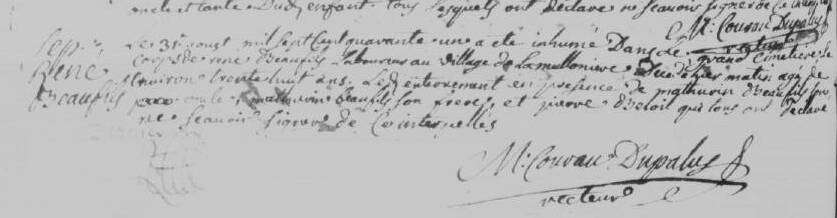 et tante Dud. enfant tous lesquels ont déclaré ne scavoir signer de ce
M: Couvan Dupalus
recteur
Sep.re
Rene
Beaufils
Le 31e aoust mil sept cent quarante une a été inhumé Dans le grand Cimetiere le
Corps de rene Beaufils Laboureur au village de Lamulloniere Décédé hier matin agé de
Environ trente huit ans. Led. enterrement en presence de mathurin Beaufils son
oncle mathurin beaufils son frere, et pierre Beloit qui tous ont déclaré
ne scavoir signer de Ce interpellés
M: Couvan Dupalus
recteur